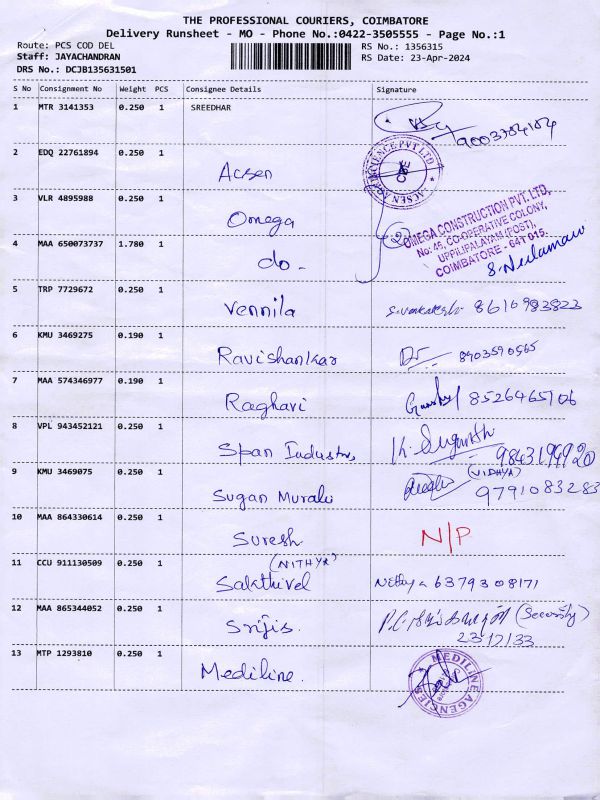 THE PROFESSIONAL COURIERS, COIMBATORE
Delivery Runsheet - MO - Phone No.:0422-3505555 - Page No.:1
Route: PCS COD DEL RS No.: 1356315
Staff: JAYACHANDRAN RS Date: 23-Apr-2024
DRS No.: DCJB135631501
S No Consignment No Weight PCS Consignee Details Signature
1 MTR 3141353 0.250 1 SREEDHAR
2 EDQ 22761894 0.250 1 Acsen
3 VLR 4895988 0.250 1 Omega
OMEGA CONSTRUCTION PVT. LTD,
No: 46, CO-OPERATIVE COLONY,
UPPILIPALAYAM (POST),
COIMBATORE - 641 015.
4 MAA 650073737 1.780 1 do.
5 TRP 7729672 0.250 1 Vennila 8610983823
6 KMU 3469275 0.190 1 Ravishankar 8903590565
7 MAA 574346977 0.190 1 Raghavi 8526465706
8 VPL 943452121 0.250 1 Span Industris
9 KMU 3469075 0.250 1 Sugan Murali (VIDHYA) 9791083283
10 MAA 864330614 0.250 1 Suresh N/P
(NITHYA)
11 CCU 911130509 0.250 1 Sakthivel Nithya 6379308171
12 MAA 865344052 0.250 1 Srijis. (Security)
13 MTP 1293810 0.250 1 Mediline.
MEDILINE AGENCIES